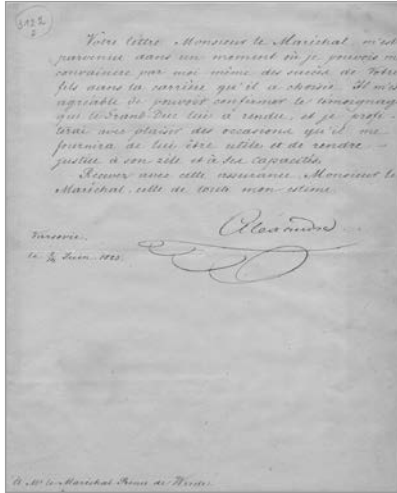 3122
Votre lettre Monsieur le Maréchal, m'est
parvenue dans un moment où je pouvois me
convaincre par moi même des succès de Votre
fils dans la carrière qu'il a choisie. Il m'est
agréable de pouvoir confirmer le témoignage
que le Grand-Duc lui a rendu, et je profi-
terai avec plaisir des occasions qu'il me
fournira de lui être utile et de rendre
justice à son zèle et à ses capacités.
Recevez avec cette assurance, Monsieur le
Maréchal, celle de toute mon estime.
Alexandre
Varsovie.
le Juin.
à Mr. le Maréchal Prince de Wrede.